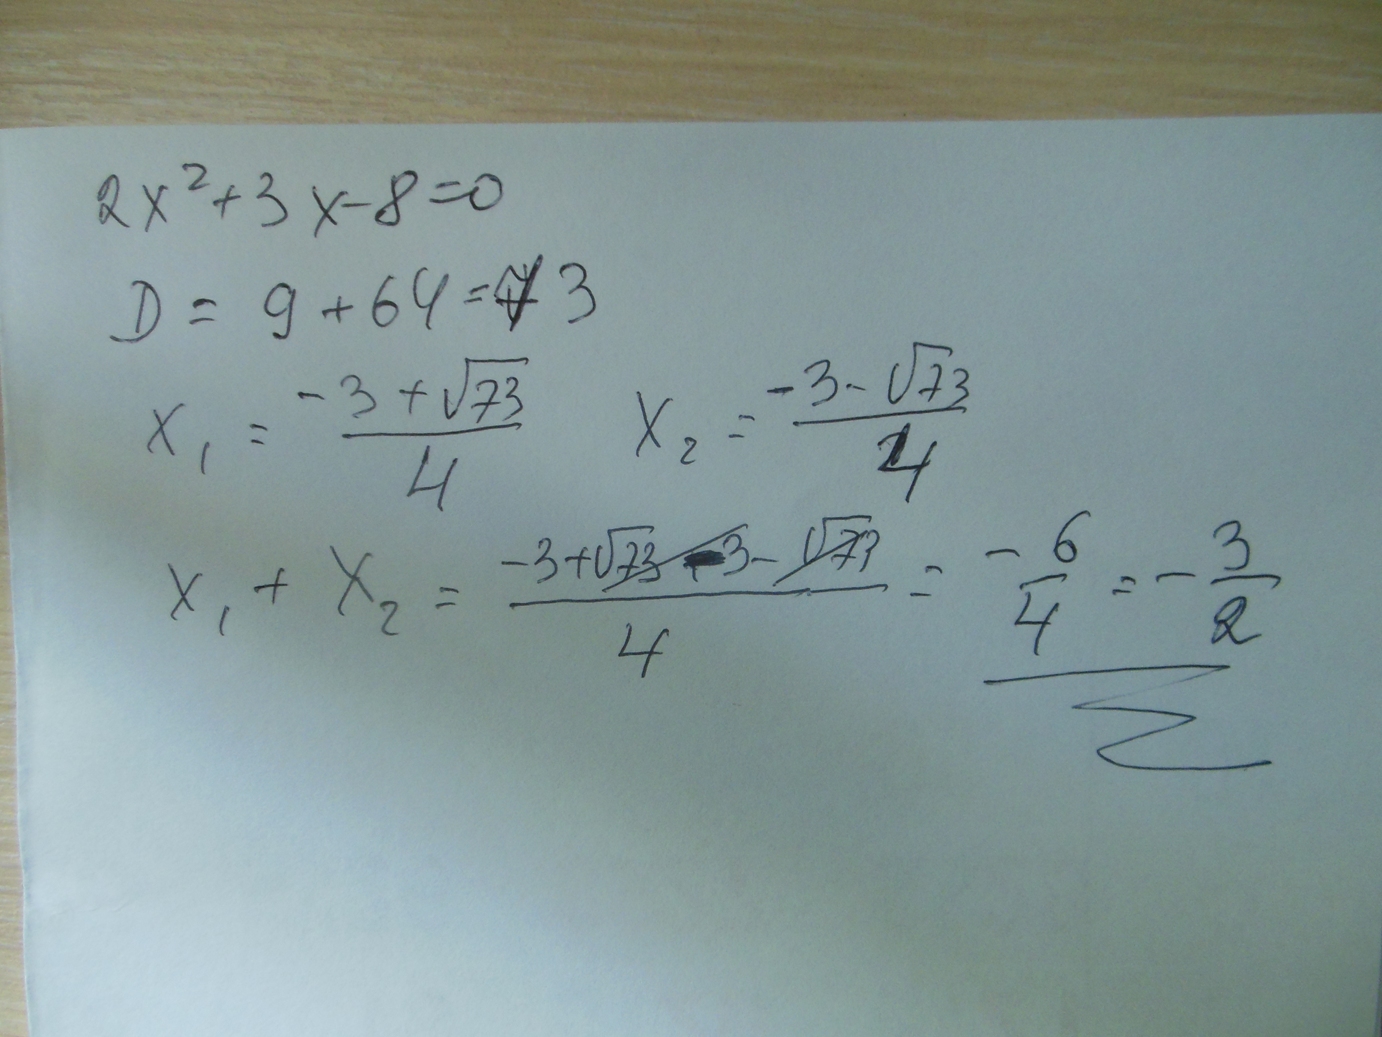 2x²+3x-8=0
D = 9+64=73
x₁ = (-3+√73)/4 x₂ = (-3-√73)/4
x₁ + x₂ = (-3+√73-3-√73)/4 = -6/4 = -3/2